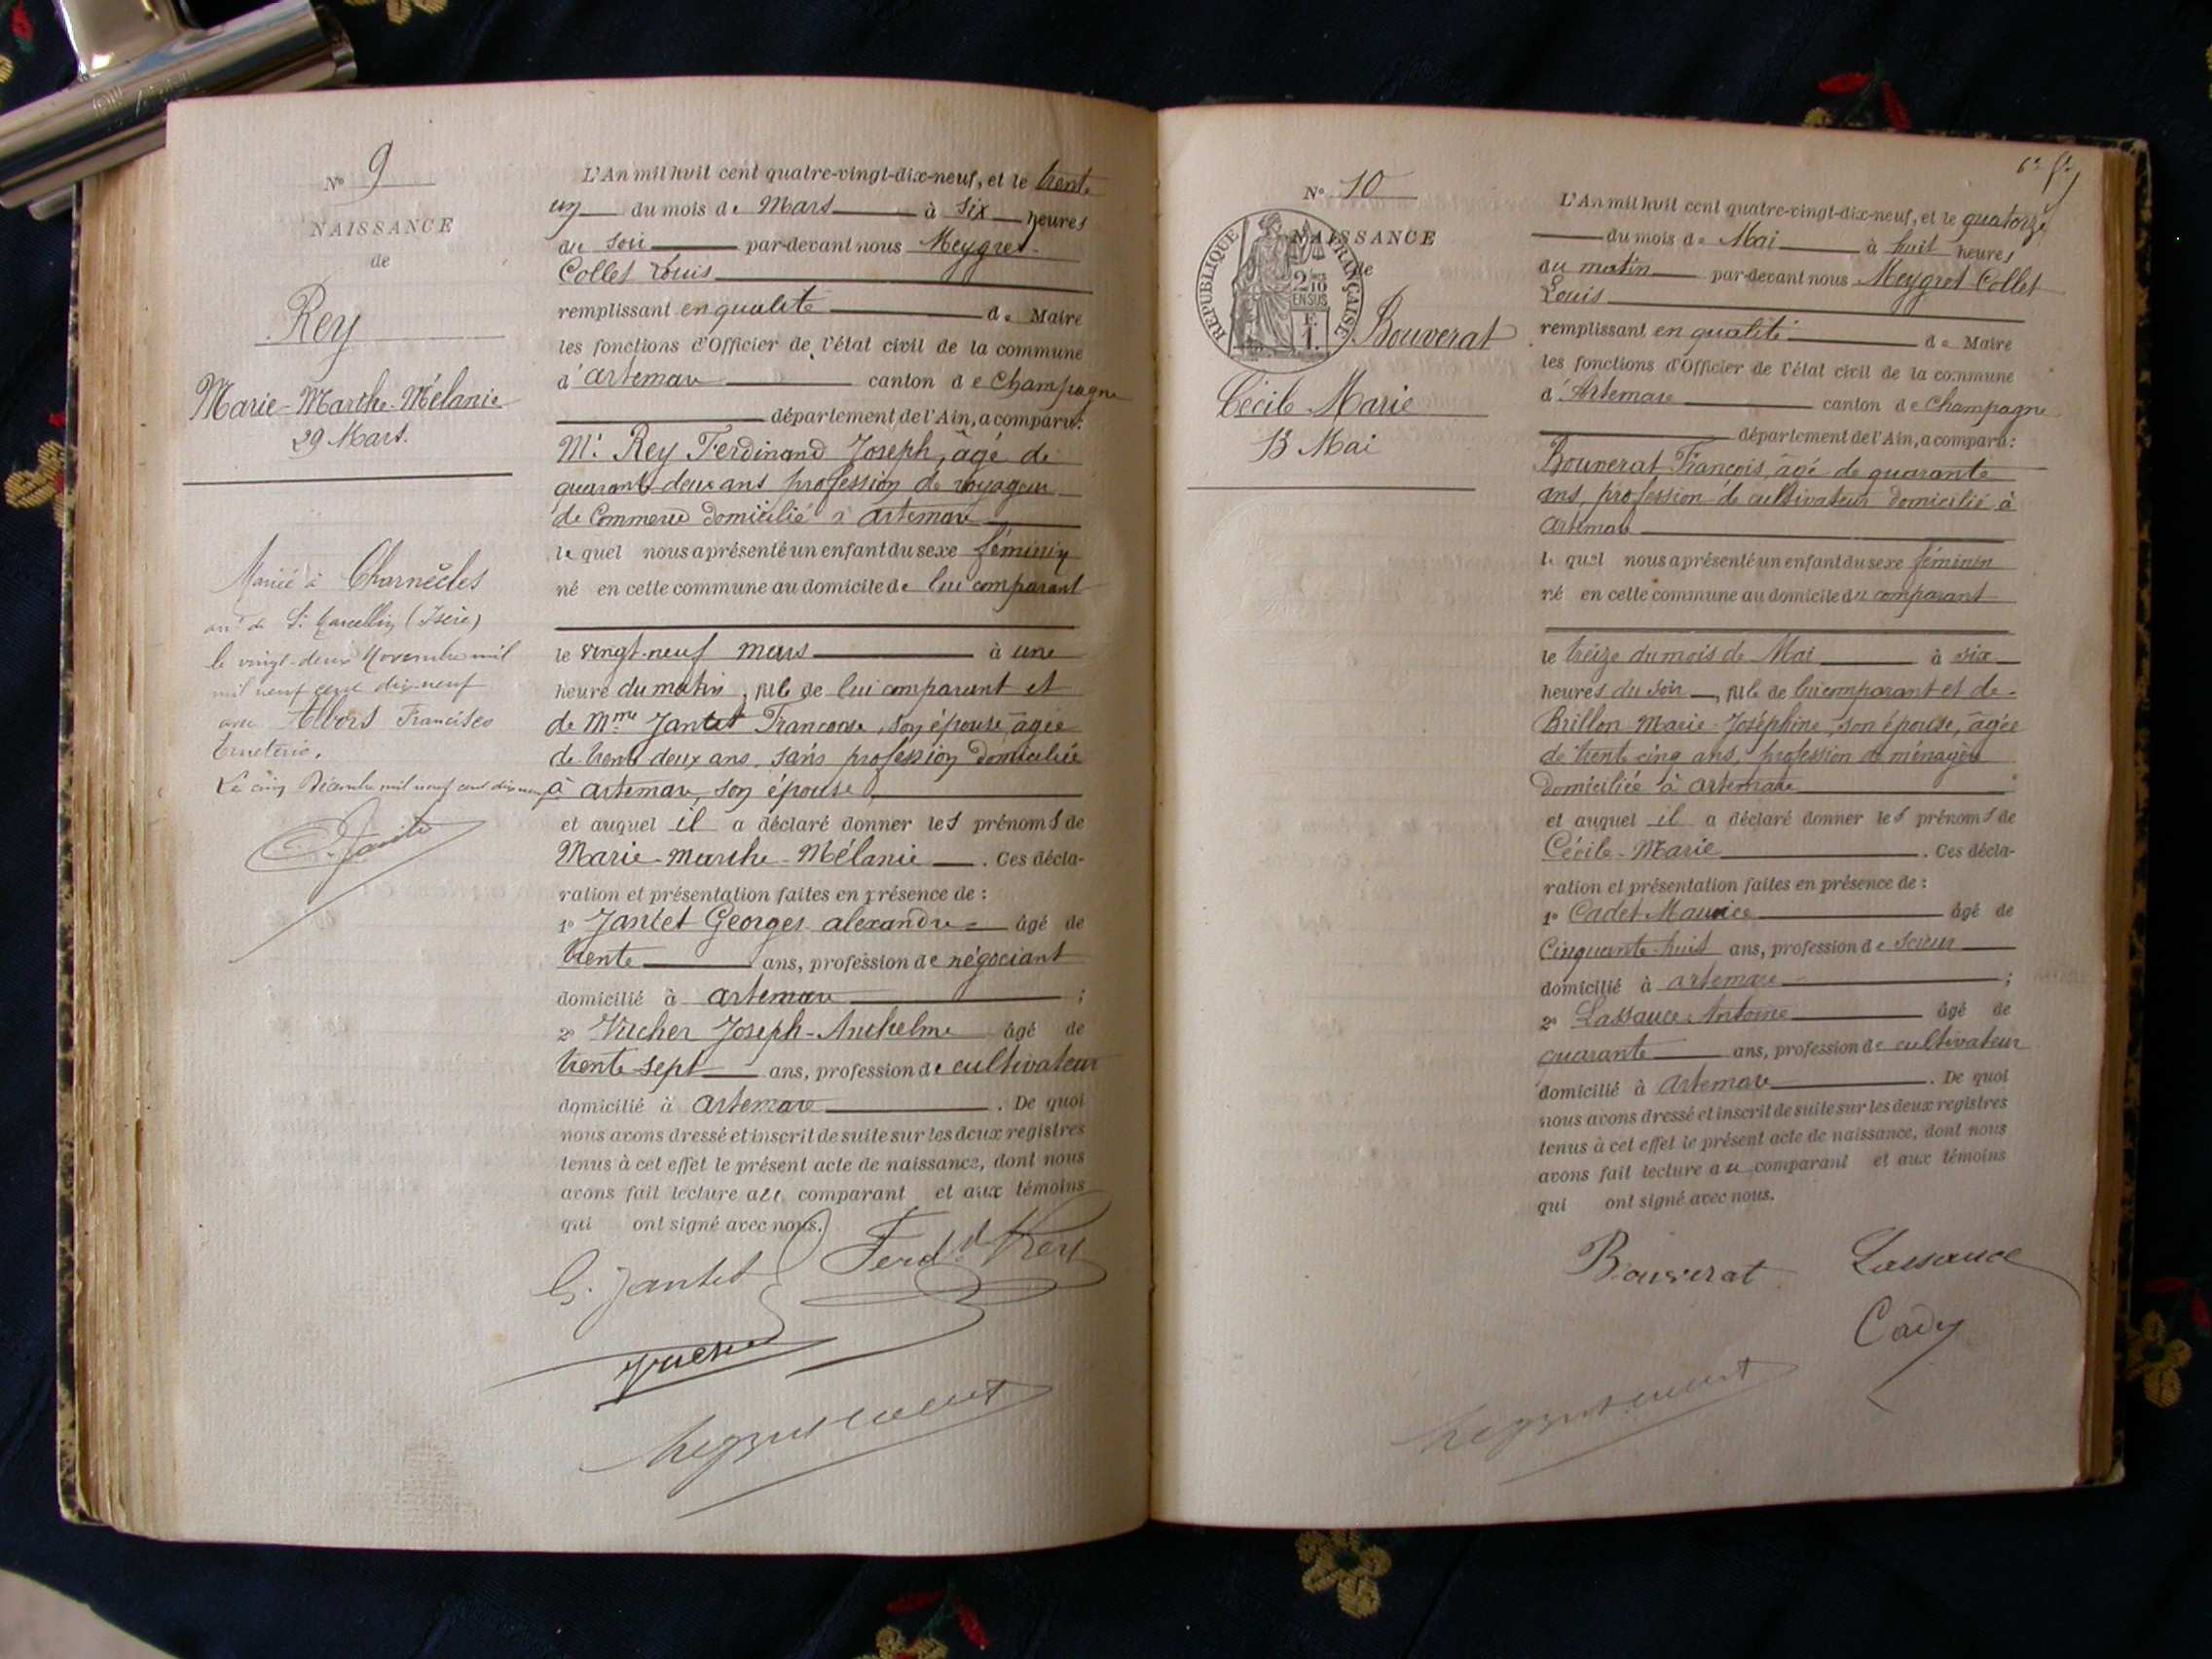 N° 9
NAISSANCE
de
Rey
Marie-Marthe-Mélanie
29 Mars.
Mariée à Charnècles
arrt de St Marcellin (Isère)
le vingt-deux Novembre mil
mil neuf cent dix-neuf
avec Albors Francisco
Emeterio.
Le cinq Décembre mil neuf cent dix neuf
L'An mil huit cent quatre-vingt-dix-neuf, et le trente
un du mois de Mars à six heures
du soir par-devant nous Meygret-
Collet Louis
remplissant en qualité de Maire
les fonctions d'Officier de l'état civil de la commune
d'artemare canton de Champagne
département de l'Ain, a comparu:
Mr Rey Ferdinand Joseph, âgé de
quarante-deux ans profession de voyageur
de Commerce domicilié à artemare
lequel nous a présenté un enfant du sexe féminin
né en cette commune au domicile de lui comparant
le vingt-neuf mars à une
heure du matin, fille de lui comparant et
de Mme Jantet Francoise, son épouse, âgée
de trente deux ans, sans profession domiciliée
à artemare, son épouse
et auquel il a déclaré donner les prénoms de
Marie-Marthe-Mélanie. Ces décla-
ration et présentation faites en présence de:
1° Jantet Georges alexandre âgé de
trente ans, profession de négociant
domicilié à artemare;
2° Vucher Joseph-Anthelme âgé de
trente-sept ans, profession de cultivateur
domicilié à artemare. De quoi
nous avons dressé et inscrit de suite sur les deux registres
tenus à cet effet le présent acte de naissance, dont nous
avons fait lecture au comparant et aux témoins
qui ont signé avec nous.
G. Jantet Ferd.d Rey
Vucher
N° 10
NAISSANCE
de
RÉPUBLIQUE FRANÇAISE
2/10
EN SUS
F.
1.
Bouverat
Cécile Marie
13 Mai
L'An mil huit cent quatre-vingt-dix-neuf, et le quatorze
du mois de Mai à huit heures
du matin par-devant nous Meygret-Collet
Louis
remplissant en qualité de Maire
les fonctions d'Officier de l'état civil de la commune
d'Artemare canton de Champagne
département de l'Ain, a comparu:
Bouverat François, âgé de quarante
ans, profession de cultivateur domicilié à
artemare
lequel nous a présenté un enfant du sexe féminin
né en cette commune au domicile du comparant
le treize du mois de Mai à six
heures du soir, fille de lui comparant et de
Brillon Marie-Joséphine, son épouse, âgée
de trente cinq ans, profession de ménagère
domiciliée à artemare
et auquel il a déclaré donner les prénoms de
Cécile-Marie. Ces décla-
ration et présentation faites en présence de:
1° Cadet Maurice âgé de
Cinquante-huit ans, profession de scieur
domicilié à artemare;
2° Lassauce Antoine âgé de
quarante ans, profession de cultivateur
domicilié à artemare. De quoi
nous avons dressé et inscrit de suite sur les deux registres
tenus à cet effet le présent acte de naissance, dont nous
avons fait lecture au comparant et aux témoins
qui ont signé avec nous.
Bouverat Lassauce